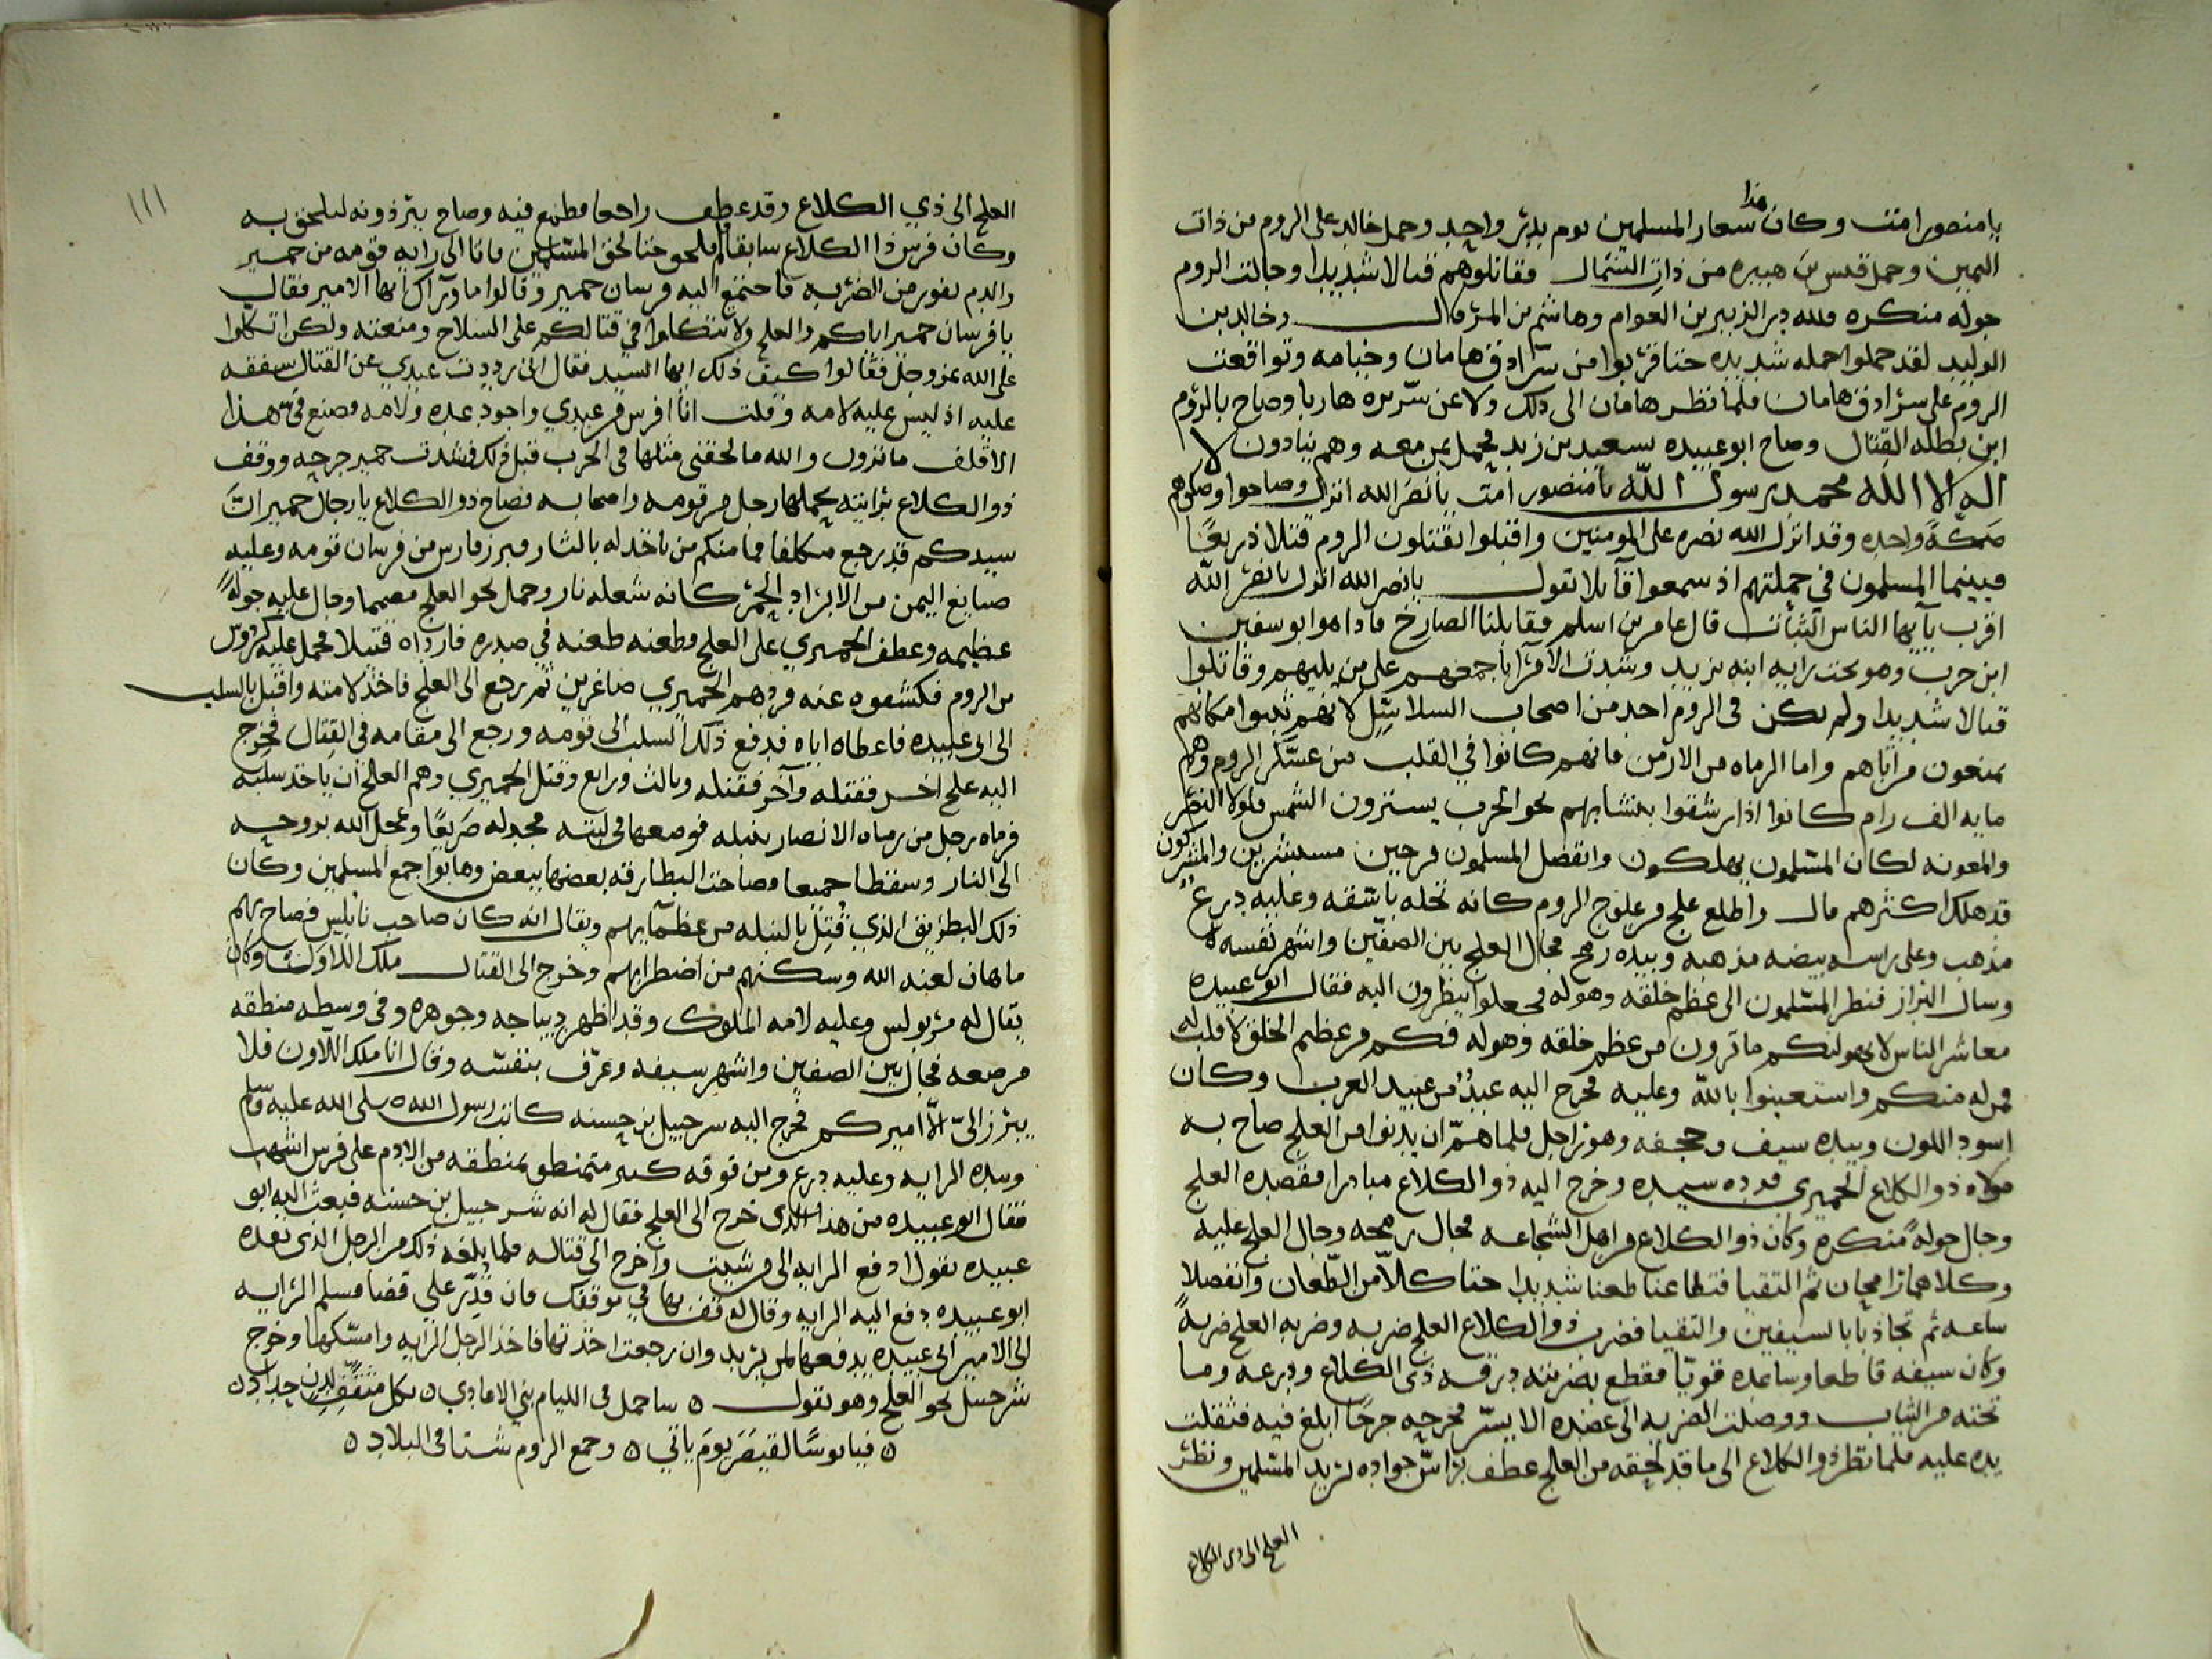 هذا
يا منصور امت وكان شعار المسلمين يوم بدر واحد وحمل خالد على الروم من ذات
اليمين وحمل قيس بن هبيره من ذات الشمال فقاتلوهم قتالا شديدا وجالت الروم
جوله منكره ولله در الزبير بن العوام وهاشم بن المرقال وخالد بن
الوليد لقد حملوا حمله شديده حتا قربوا من سرادق هامان وخيامه وتواقعت
الروم على سرادق هامان فلما نظر هامان الى ذلك ولا عن سريره هاربا وصاح بالروم
ابن بطله القتال وصاح ابو عبيده بسعيد بن زيد فحمل بمن معه وهم ينادون لا
اله الا الله محمد رسول الله يا منصور امت يا نصر الله انزل وصاحوا وصكوهم
صكة واحده وقد انزل الله نصره على المومنين واقبلوا يقتلون الروم قتلا ذريعا
فبينما المسلمون في حملتهم اذ سمعوا قآيلا يقول يا نصر الله انزل يا نصر الله
اقرب يآيها الناس الثبات قال عامر بن اسلم فقابلنا الصارخ فاذا هو ابو سفين
ابن حرب وهو تحت رايه ابنه يزيد وشدت الامرآ باجمعهم على من يليهم وقاتلوا
قتالا شديدا ولم يكن في الروم احد من اصحاب السلاسل لانهم ثبتوا مكانهم
يمنعون من اتاهم واما الرماه من الارمن فانهم كانوا في القلب من عسكر الروم وهم
مايه الف رام كانوا اذا رشقوا بنشابهم نحو الحرب يسترون الشمس فلولا النصر
والمعونه لكان المسلمون يهلكون وانفصل المسلمون فرحين مستبشرين والمشركون
قد هلك اكثرهم قال واطلع علج من علوج الروم كانه نخله باسقه وعليه درع
مذهب وعلى راسه بيضه مذهبه وبيده رمح فجال العلج بين الصفين واشهر نفسه
وسال البراز فنظر المسلمون الى عظم خلقه وهوله فجعلوا ينظرون اليه فقال ابو عبيده
معاشر الناس لا يهولنكم ما ترون من عظم خلقه وهوله فكم من عظيم الخلق لا قلب له
فمن له منكم واستعينوا بالله وعليه فخرج اليه عبد من عبيد العرب وكان
اسود اللون وبيده سيف وحجفه وهو راجل فلما هم ان يدنوا من العلج صاح به
مولاه ذو الكلاع الحميري فرده سيده وخرج اليه ذو الكلاع مبادرا فقصده العلج
وجال جوله منكره وكان ذو الكلاع من اهل الشجاعه فجال برمحه وجال العلج عليه
وكلاهما رامحان ثم التقيا فتطاعنا طعنا شديدا حتا كلا من الطعان وانفصلا
ساعه ثم تجاذبا بالسيفين والتقيا فضرب ذو الكلاع العلج ضربه وضربه العلج ضربة
وكان سيفه قاطعا وساعده قويا فقطع بضربته درقه ذي الكلاع ودرعه وما
تحته من الثياب ووصلت الضربه الى عضده الايسر فجرحه جرحا ابلغ فيه فثقلت
يده عليه فلما نظر ذو الكلاع الى ما قد لحقه من العلج عطف براس جواده يريد المسلمين ونظر
العلج الى ذي الكلاع
١١١
العلج الى ذي الكلاع وقد عطف راجعا فطمع فيه وصاح ببرذونه ليلحق به
وكان فرس ذا الكلاع سابقا فلم يلحق حتا لحق المسلمين فاتا الى رايه قومه من حمير
والدم يفور من الضربه فاجتمع اليه فرسان حمير وقالوا ما ورآك ايها الامير فقال
يا فرسان حمير اياكم والعلج ولا تتكلوا في قتالكم على السلاح ومنعته ولكن اتكلوا
على الله عز وجل فقالوا كيف ذلك ايها السيد فقال اني رددت عبدي عن القتال شفقه
عليه اذ ليس عليه لامه وقلت انا افرس من عبدي واجود عده ولامه فصنع في هذا
الاقلف ما ترون والله ما لحقني مثلها في الحرب قبل ذلك فشدت حمير جرحه ووقف
ذو الكلاع برايته يحملها رجل من قومه واصحابه فصاح ذو الكلاع يا رجال حمير ان
سيدكم قد رجع فما منكم من ياخذ له بالثار فبرز فارس من فرسان قومه وعليه
صبايغ اليمن من الابراد الحمر كانه شعله نار وحمل نحو العلج مصمما وجال عليه جولة
عظيمه وعطف الحميري على العلج وطعنه طعنه في صدره فارداه قتيلا فحمل عليه كردوس
من الروم فكشفوه عنه فردهم الحميري صاغرين ثم رجع الى العلج فاخذ لامته واقبل بالسلب
الى ابي عبيده فاعطاه اياه فدفع ذلك السلب الى قومه ورجع الى مقامه في القتال فخرج
اليه علج اخر فقتله وآخر فقتله وثالث ورابع وقتل الحميري وهم العلج ان ياخذ سلبه
فرماه رجل من رماه الانصار بنبله فوضعها في لبته فجدله صريعا وعجل الله بروحه
الى النار وسقطا جميعا وصاحت البطارقه بعضها ببعض وهابوا جمع المسلمين وكان
ذلك البطريق الذي قتل بالنبله من عظمآيهم ويقال انه كان صاحب نابلس فصاح بهم
ماهان لعنه الله وسكنهم من اضطرابهم وخرج الى القتال ملك اللاون وكان
يقال له مريولس وعليه لامه الملوك وقد اظهر ديباجه وجوهره وفي وسطه منطقه
مرصعه فجال بين الصفين واشهر سيفه وعرف بنفسه وقال انا ملك اللاون فلا
يبرز الى الا اميركم فخرج اليه شرحبيل بن حسنه كاتب رسول الله صلى الله عليه وسلم
وبيده الرايه وعليه درع ومن فوقه متمنطق بمنطقه من الادم على فرس اشهب
فقال ابو عبيده من هذا الذى خرج الى العلج فقال له انه شرحبيل بن حسنه فبعث اليه ابو
عبيده يقول ادفع الرايه الى من شيت واخرج الى قتاله فلما بلغه ذلك من الرجل الذي بعثه
ابو عبيده دفع اليه الرايه وقال له قف بها في موقفك فان قدر علي قضا فسلم الرايه
الى الامير ابي عبيده يدفعها لمن يريد وان رجعت اخذتها فاخذ الرجل الرايه وامسكها وخرج
شرحبيل نحو العلج وهو يقول ٥ ساحمل في الليام بني الاعادي ٥ بكل مثقف لدن حداد ٥
٥ فيا بوسا لقيصر يوم ياتي ٥ وجمع الروم شتا في البلاد ٥